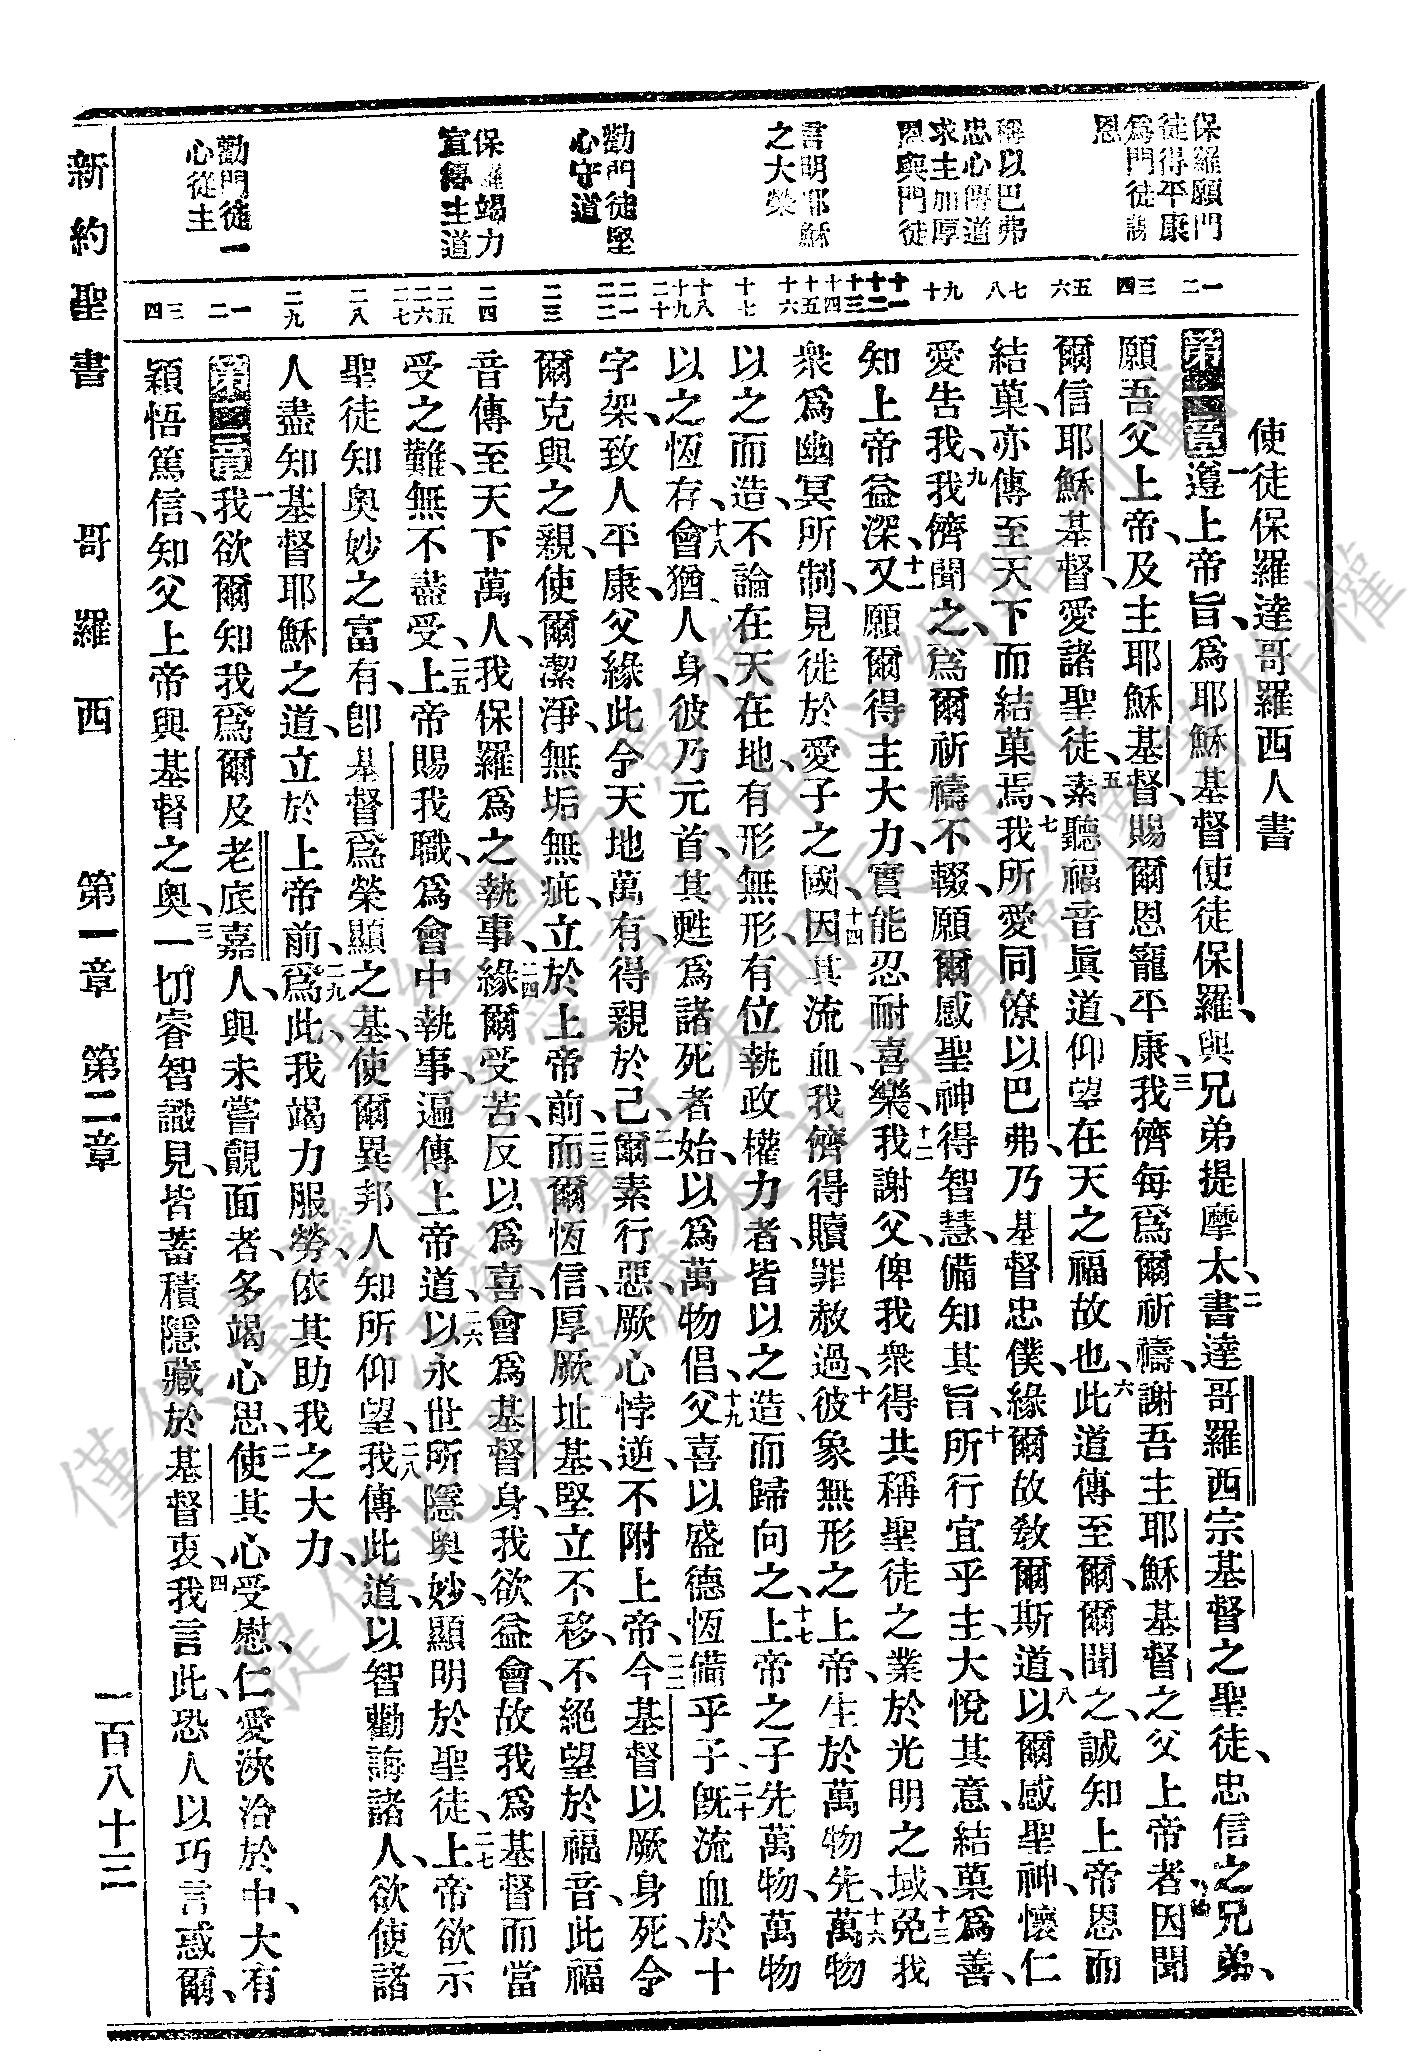 保羅願門
徒得平康
為門徒謝
恩
稱以巴弗
忠心傳道
求主加厚
恩與門徒
言明耶穌
之大榮
勸門徒堅
心守道
保羅竭力
宣傳主道
勸門徒一
心從主
一
二
三
四
五
六
七
八
九
十
十一
十二
十三
十四
十五
十六
十七
十八
十九
二十
二一
二二
二三
二四
二五
二六
二七
二八
二九
一
二
三
四
使徒保羅達哥羅西人書
第一章一遵上帝旨、為耶穌基督使徒保羅、與兄弟提摩太、二書達哥羅西宗基督之聖徒、忠信之兄弟、
願吾父上帝、及主耶穌基督、賜爾恩寵平康、三我儕每為爾祈禱、謝吾主耶穌基督之父上帝者、四因聞
爾信耶穌基督、愛諸聖徒、五素聽福音眞道、仰望在天之福故也、六此道傳至爾、爾聞之、誠知上帝恩而
結菓、亦傳至天下而結菓焉、七我所愛同僚以巴弗、乃基督忠僕、緣爾故敎爾斯道、八以爾感聖神、懷仁
愛告我、九我儕聞之、為爾祈禱不輟、願爾感聖神得智慧、備知其旨、十所行宜乎主、大悅其意、結菓為善、
知上帝益深、十一又願爾得主大力、實能忍耐喜樂、十二我謝父、俾我衆得共稱聖徒之業於光明之域、十三免我
衆為幽冥所制、見徙於愛子之國、十四因其流血、我儕得贖罪赦過、十五彼象無形之上帝、生於萬物先、十六萬物
以之而造、不論在天在地、有形無形、有位執政權力者、皆以之造、而歸向之、十七上帝之子先萬物、萬物
以之恆存、十八會猶人身、彼乃元首、其甦為諸死者始、以為萬物倡、十九父喜以盛德恆備乎子、二十旣流血於十
字架、致人平康、父緣此令天地萬有、得親於己、二一爾素行惡、厥心悖逆、不附上帝、二二今基督以厥身死、令
爾克與之親、使爾潔淨、無垢無疵、立於上帝前、二三而爾恆信、厚厥址基、堅立不移、不絕望於福音、此福
音傳至天下萬人、我保羅為之執事、二四緣爾受苦、反以為喜、會為基督身、我欲益會、故我為基督而當
受之難、無不盡受、二五上帝賜我職、為會中執事、遍傳上帝道、二六以永世所隱奧妙、顯明於聖徒、二七上帝欲示
聖徒知奧妙之富有、卽基督為榮顯之基、使爾異邦人知所仰望、二八我傳此道、以智勸誨諸人、欲使諸
人盡知基督耶穌之道、立於上帝前、二九為此、我竭力服勞、依其助我之大力、
第二章一我欲爾知我為爾及老底嘉人、與未嘗覿面者、多竭心思、二使其心受慰、仁愛浹洽於中、大有
穎悟篤信、知父上帝與基督之奧、三一切睿智識見、皆蓄積隱藏於基督衷、四我言此、恐人以巧言惑爾、
新約聖書 哥羅西 第一章 第二章 一百八十三
僅供
提供